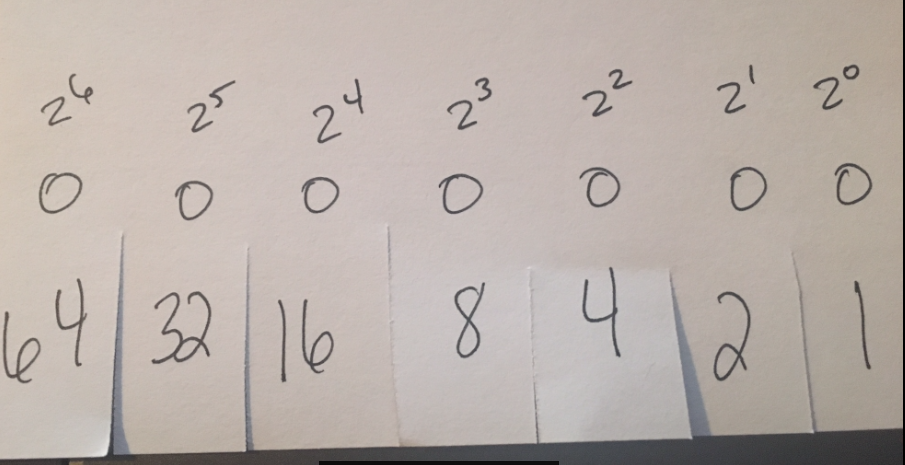 2⁶ 2⁵ 2⁴ 2³ 2² 2¹ 2⁰
0 0 0 0 0 0 0
64 32 16 8 4 2 1